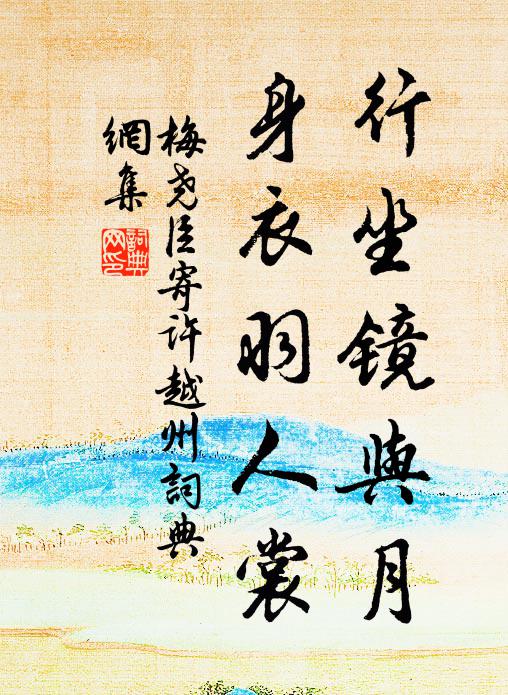 行坐鏡與月
身衣羽人裳
梅堯臣寄許越州詞典
網集
詞典
网印